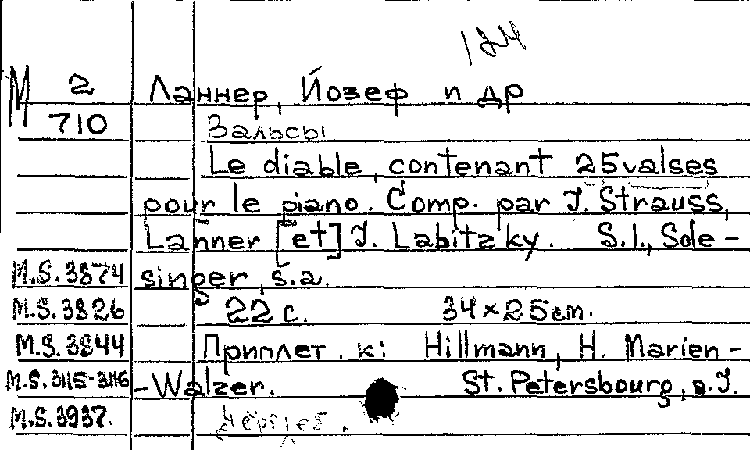 124
М 2 Ланнер, Йозеф и др
710 Вальсы
Le diable, contenant 25 valses
pour le piano. Comp. par J. Strauss,
Lanner [et] J. Labitzky. S.l., Sde-
M.S. 3874 singer, s.a.
M.S. 3826 22 c. 34×25 cm.
M.S. 3844 Приплет. к: Hillmann, H. Marien-
M.S. 3115-3116 -Walzer. St. Petersbourg, s.J.
M.S. 3937.